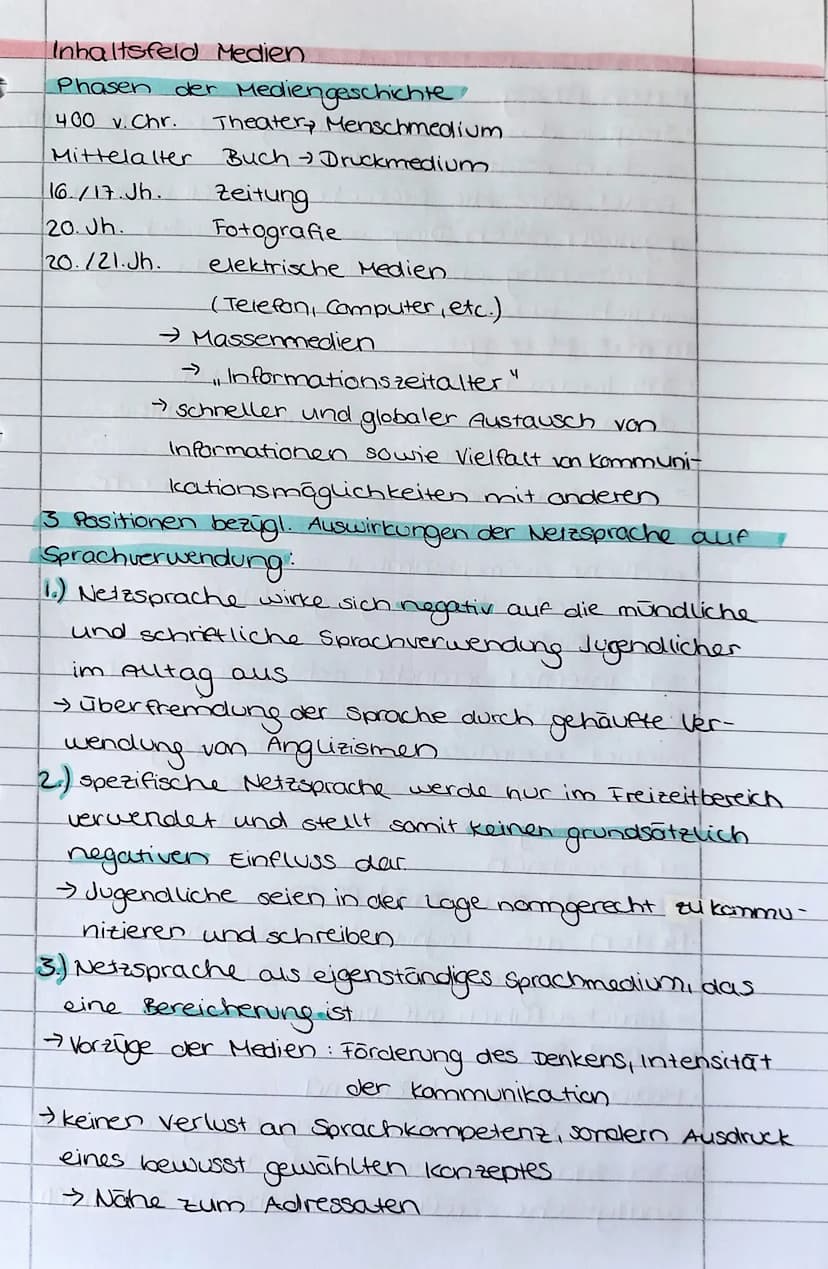 Inhaltsfeld Medien
Phasen der Mediengeschichte
400 v. Chr. Theater → Menschmedium
Mittelalter Buch → Druckmedium
16./17. Jh. Zeitung
20. Jh. Fotografie
20./21. Jh. elektrische Medien
(Telefon, Computer, etc.)
→ Massenmedien
→ „Informationszeitalter"
→ schneller und globaler Austausch von
Informationen sowie Vielfalt von Kommuni-
kationsmöglichkeiten mit anderen
3 Positionen bezügl. Auswirkungen der Netzsprache auf
Sprachverwendung:
1.) Netzsprache wirke sich negativ auf die mündliche
und schriftliche Sprachverwendung Jugendlicher
im Alltag aus
→ Überfremdung der Sprache durch gehäufte Ver-
wendung von Anglizismen
2.) spezifische Netzsprache werde nur im Freizeitbereich
verwendet und stellt somit keinen grundsätzlich
negativen Einfluss dar
→ Jugendliche seien in der Lage normgerecht zu kommu-
nizieren und schreiben
3.) Netzsprache als eigenständiges Sprachmedium, das
eine Bereicherung ist
→ Vorzüge der Medien: Förderung des Denkens, Intensität
der Kommunikation
→ keinen Verlust an Sprachkompetenz, sondern Ausdruck
eines bewusst gewählten Konzeptes
→ Nähe zum Adressaten